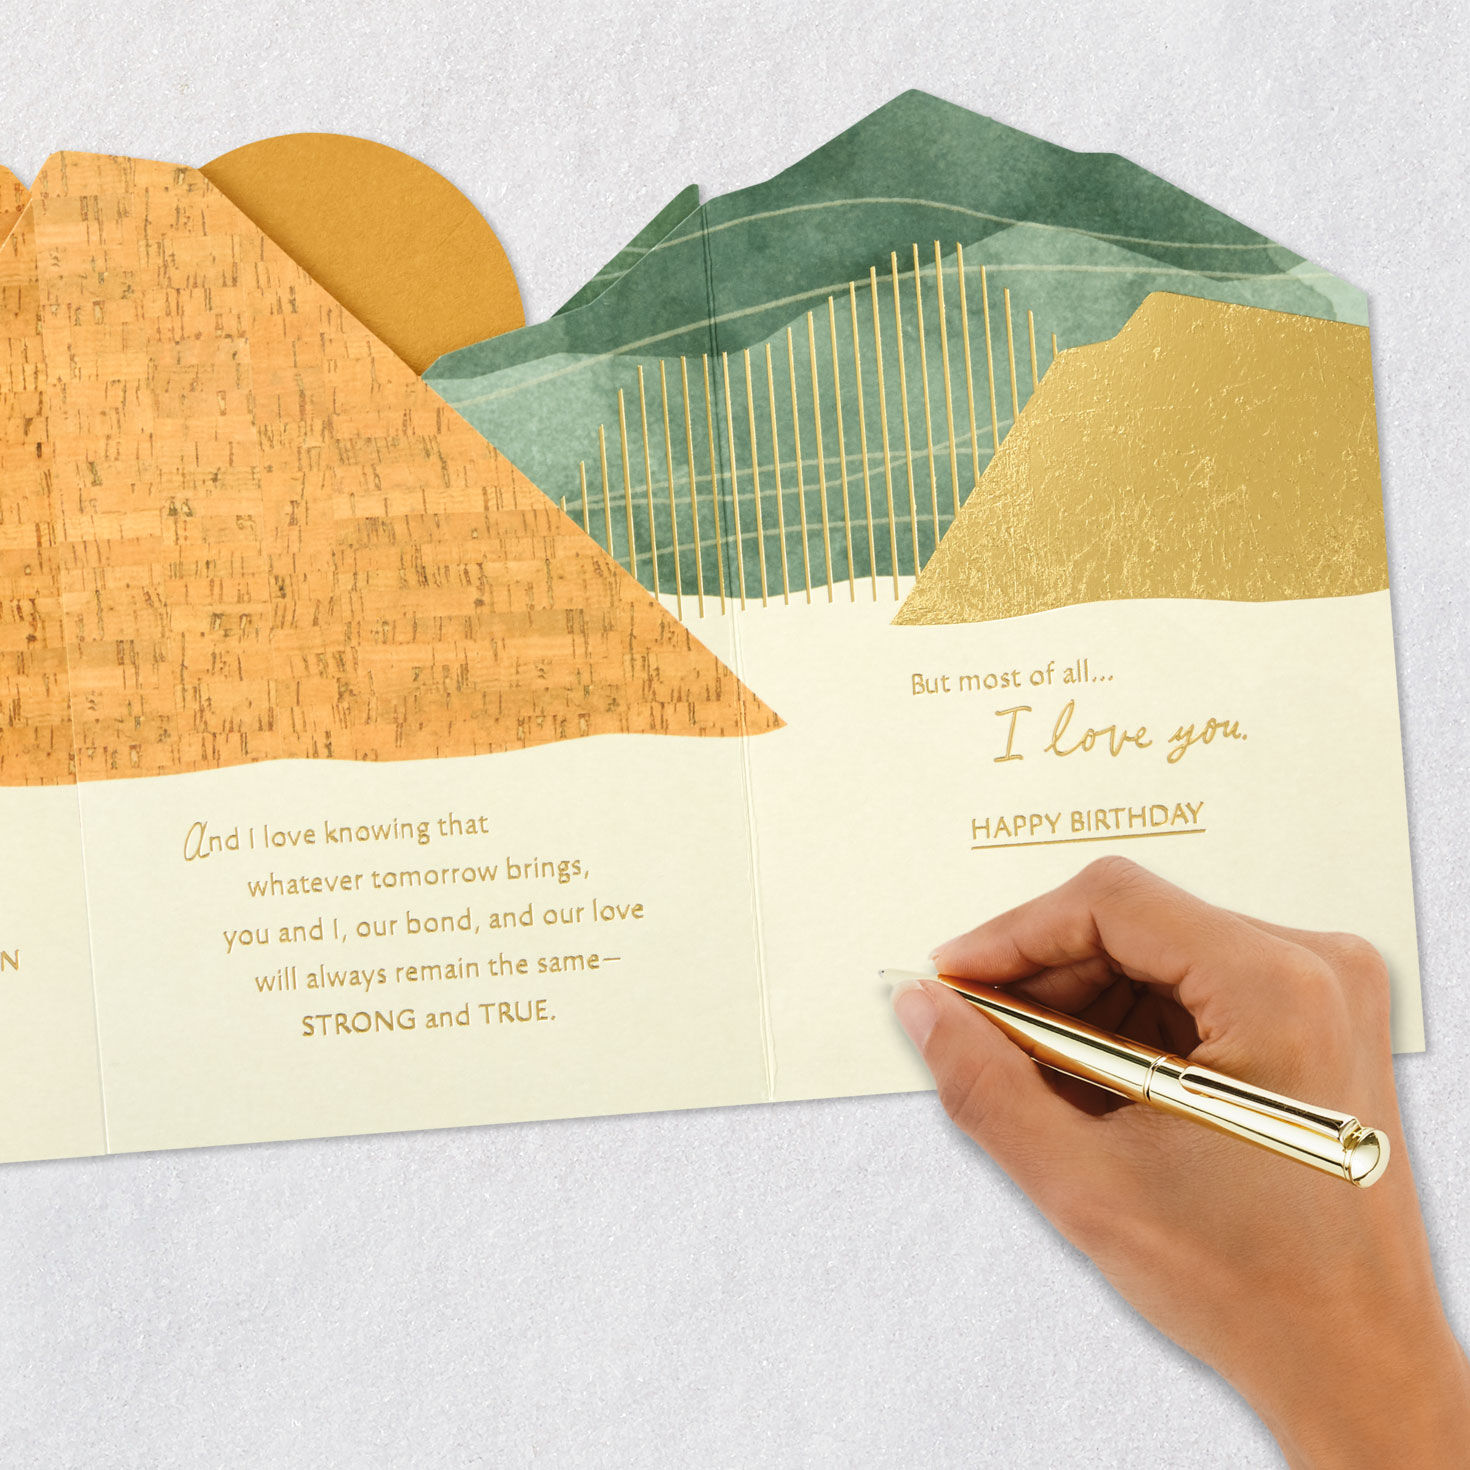 N
And I love knowing that
whatever tomorrow brings,
you and I, our bond, and our love
will always remain the same—
STRONG and TRUE.
But most of all...
I love you.
HAPPY BIRTHDAY